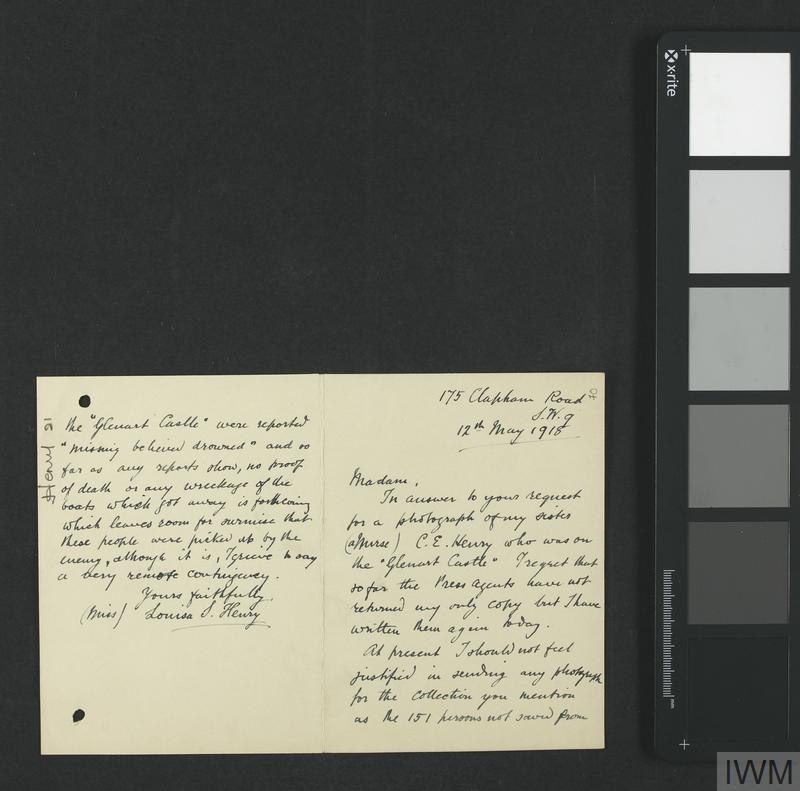 175 Clapham Road
S.W.9
12th May 1918
70
Madam,
In answer to your request
for a photograph of my sister
(a Nurse) C. E. Henry who was on
the "Glenart Castle" I regret that
so far the Press Agents have not
returned my only copy but I have
written them again today.
At present I should not feel
justified in sending any photograph
for the collection you mention
as the 151 persons not saved from
the "Glenart Castle" were reported
"missing believed drowned" and so
far as any reports show, no proof
of death or any wreckage of the
boats which got away is forthcoming
which leaves room for surmise that
these people were picked up by the
enemy, although it is, I grieve to say
a very remote contingency.
Yours faithfully,
(Miss) Louisa S. Henry
Henry 21
x-rite
mm
IWM